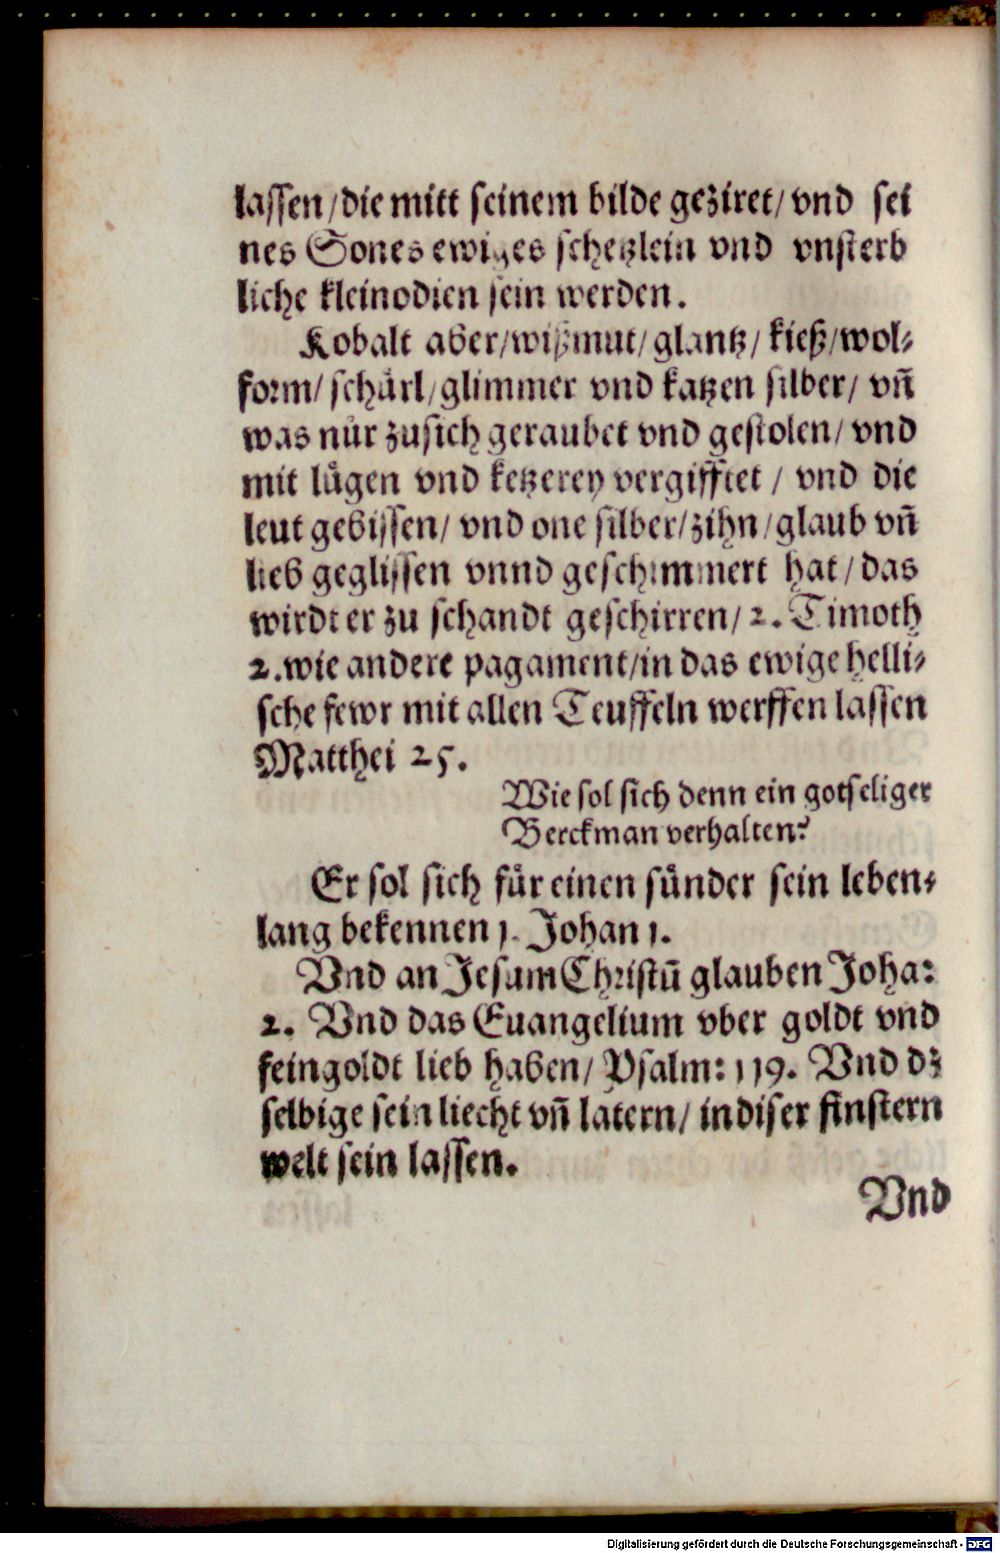 lassen/die mitt seinem bilde geziret/ vnd sei
nes Sones ewiges schetzlein vnd vnsterb
liche kleinodien sein werden.
Kobalt aber/wißmut/ glantz/ kieß/wol-
form/ schürl/glimmer vnd katzen silber/ vñ
was nůr zusich geraubet vnd gestolen/ vnd
mit lůgen vnd ketzerey vergifftet / vnd die
leut gebissen/ vnd one silber/zihn/glaub vñ
lieb geglissen vnnd geschimmert hat/das
wirdt er zu schandt geschirren/ 2. Timoth
2.wie andere pagament/in das ewige helli-
sche fewr mit allen Teuffeln werffen lassen
Matthei 25.
Wie sol sich denn ein gotseliger
Berckman verhalten?
Er sol sich fůr einen sůnder sein leben-
lang bekennen 1. Johan 1.
Vnd an Jesum Christū glauben Joha:
2. Vnd das Euangelium vber goldt vnd
feingoldt lieb haben/ Psalm: 119. Vnd dz
selbige sein liecht vñ latern/ in diser finstern
welt sein lassen.
Vnd
Digitalisierung gefördert durch die Deutsche Forschungsgemeinschaft - DFG